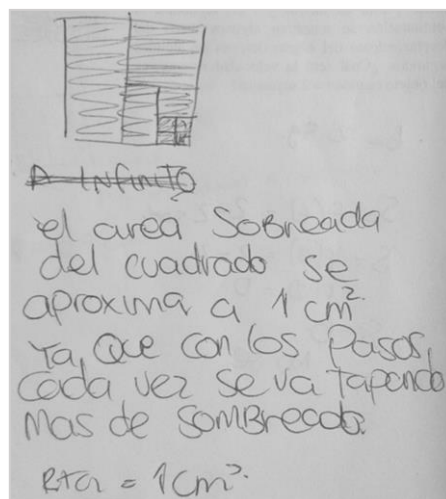 A INFINITO
el area SOBREADA
del cuadrado se
aproxima a 1 cm².
Ya, Que con los Pasos,
Cada vez se va Tapando
Mas de SOMBREADO.
RTA = 1 Cm².